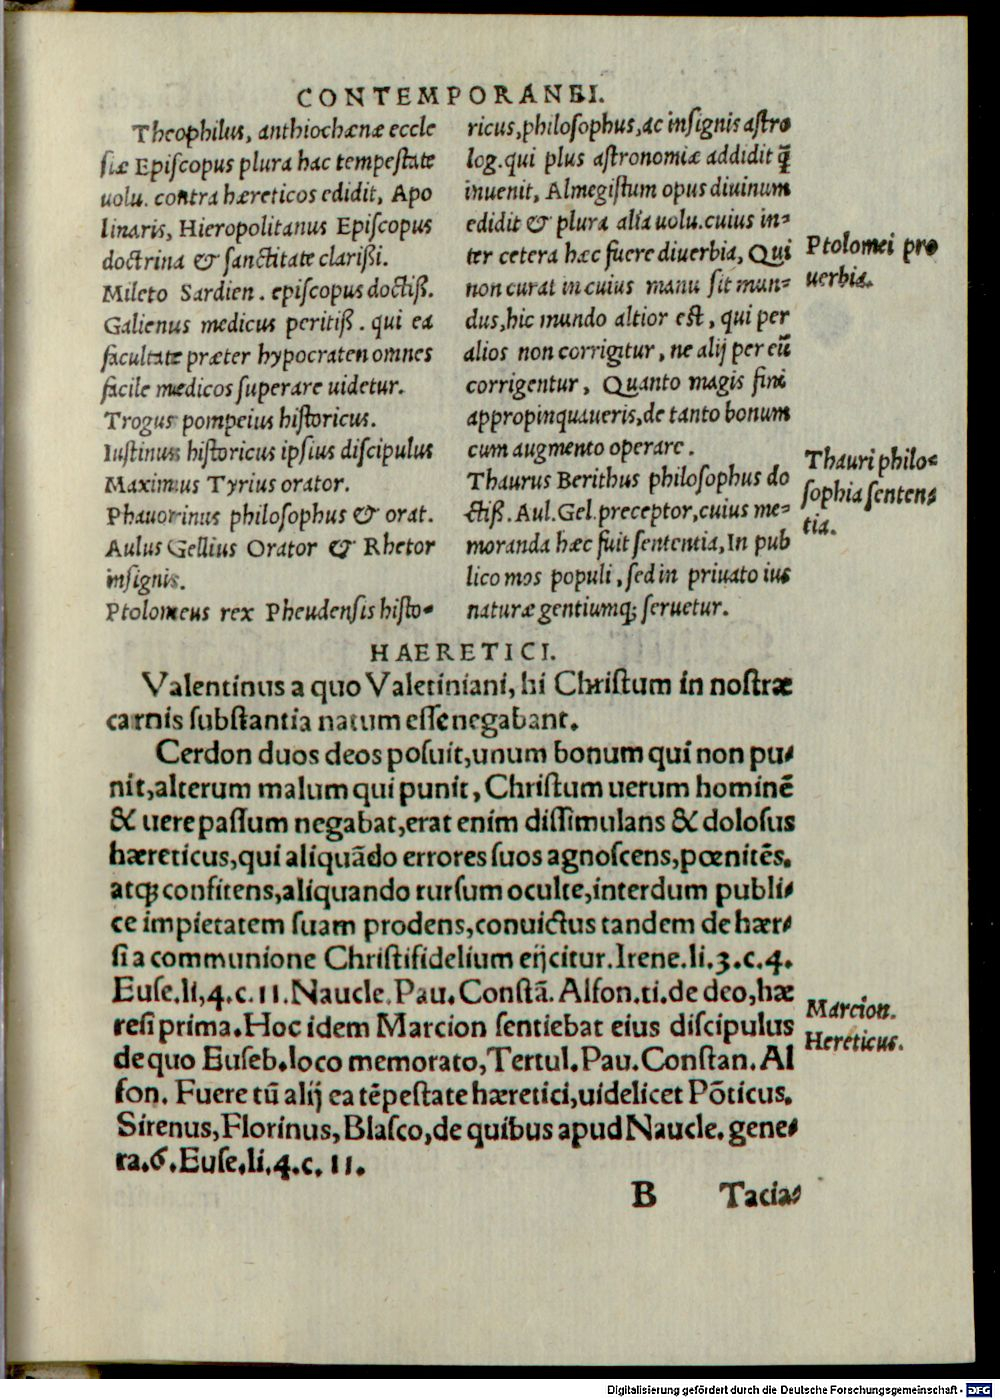 CONTEMPORANEI.
Theophilus, anthiochænæ eccle
siæ Episcopus plura hac tempestate
uolu. contra hæreticos edidit, Apo
linaris, Hieropolitanus Episcopus
doctrina & sanctitate clarißi.
Mileto Sardien. episcopus doctiß.
Galienus medicus peritiß. qui ea
facultate præter hypocraten omnes
facile medicos superare uidetur.
Trogus pompeius historicus.
Iustinus historicus ipsius discipulus
Maximus Tyrius orator.
Phauorinus philosophus & orat.
Aulus Gellius Orator & Rhetor
insignis.
Ptolomeus rex Pheudensis histo-
ricus, philosophus, ac insignis astro
log. qui plus astronomiæ addidit q̃
inuenit, Almegistum opus diuinum
edidit & plura alia uolu. cuius in-
ter cetera hæc fuere diuerbia, Qui
non curat in cuius manu sit mun-
dus, hic mundo altior est, qui per
alios non corrigitur, ne alij per eũ
corrigentur, Quanto magis fini
appropinquaueris, de tanto bonum
cum augmento operare.
Thaurus Berithus philosophus do
ctiß. Aul. Gel. preceptor, cuius me-
moranda hæc fuit sententia, In pub
lico mos populi, sed in priuato ius
naturæ gentiumq; seruetur.
Ptolomei pro
uerbia.
Thauri philo-
sophia senten-
tia.
HAERETICI.
Valentinus a quo Valetiniani, hi Christum in nostræ
carnis substantia natum esse negabant.
Cerdon duos deos posuit, unum bonum qui non pu-
nit, alterum malum qui punit, Christum uerum hominẽ
& uere passum negabat, erat enim dissimulans & dolosus
hæreticus, qui aliquãdo errores suos agnoscens, pœnitẽs.
atq; confitens, aliquando rursum oculte, interdum publi-
ce impietatem suam prodens, conuictus tandem de hær-
si a communione Christifidelium eijcitur. Irene. li. 3. c. 4.
Euse. li, 4. c. 11. Naucle. Pau. Constã. Alfon. ti. de deo, hæ
resi prima. Hoc idem Marcion sentiebat eius discipulus
de quo Euseb. loco memorato, Tertul. Pau. Constan. Al
fon. Fuere tũ alij ea tẽpestate hæretici, uidelicet Põticus.
Sirenus, Florinus, Blasco, de quibus apud Naucle. gene-
ra. 6. Euse. li. 4. c. 11.
Marcion.
Hereticus.
B Tacia-
Digitalisierung gefördert durch die Deutsche Forschungsgemeinschaft - DFG